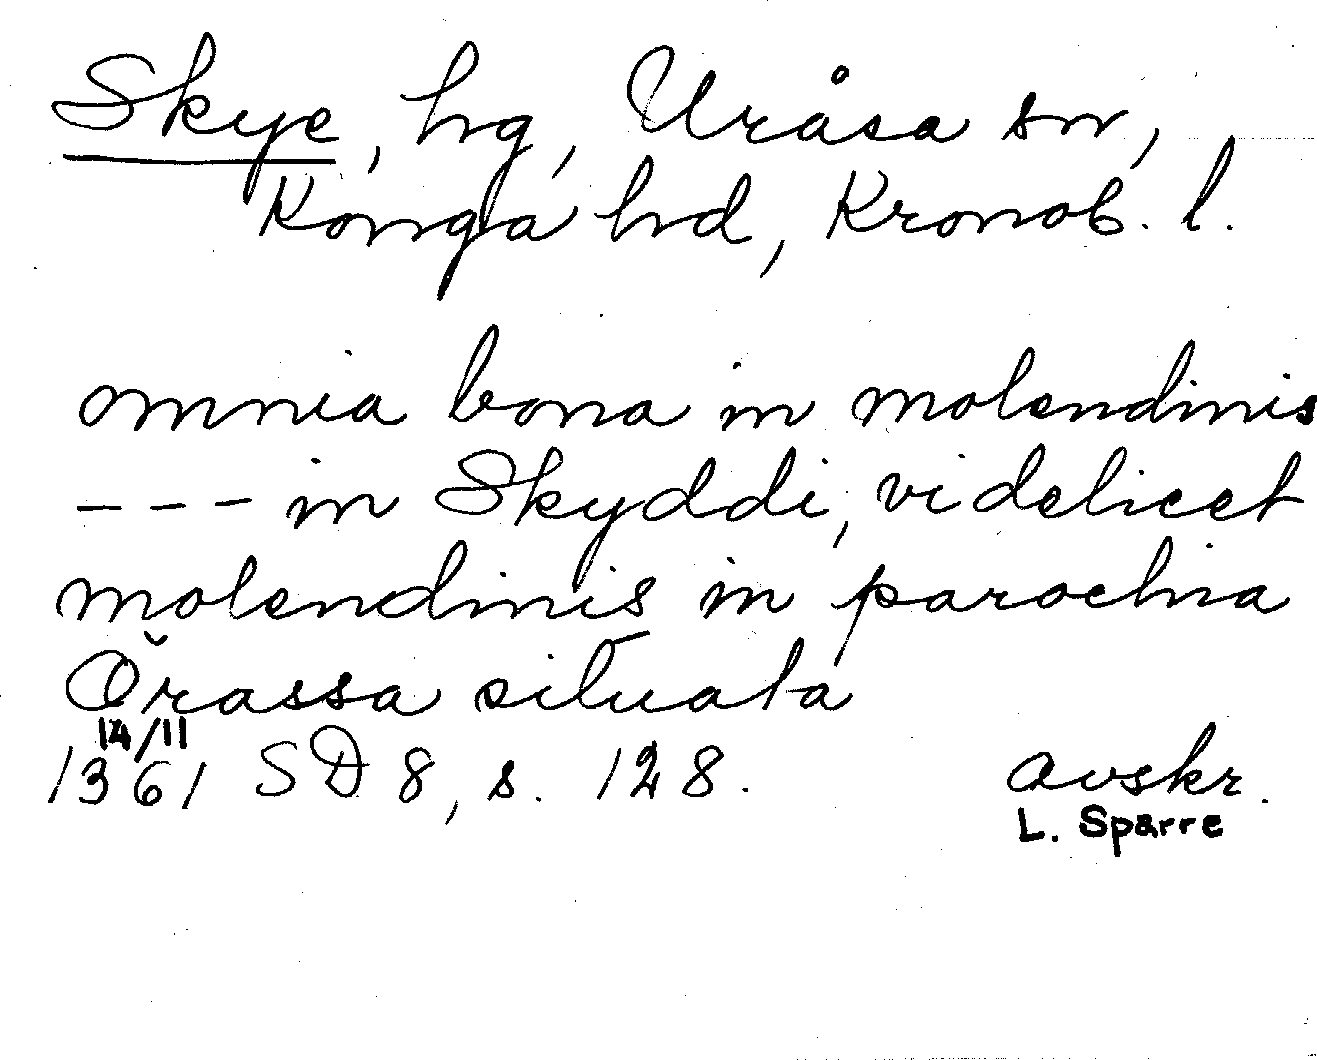 Skye, hg, Uråsa sn,
Konga hd, Kronob. l.
omnia bona in molendinis
--- in Skyddi, videlicet
molendinis in parochia
Örassa situata
14/11
1361 SD 8, s. 128. avskr.
L. Sparre